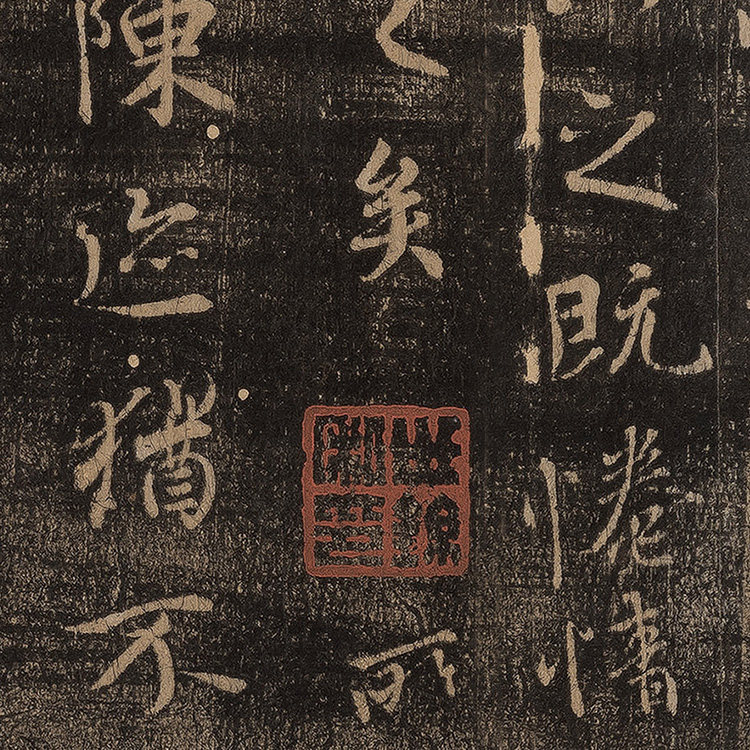 之既惓情
矣所
陳迹猶不